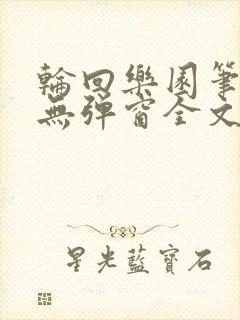 輪回樂園筆
無彈窗全文
星光藍寶石